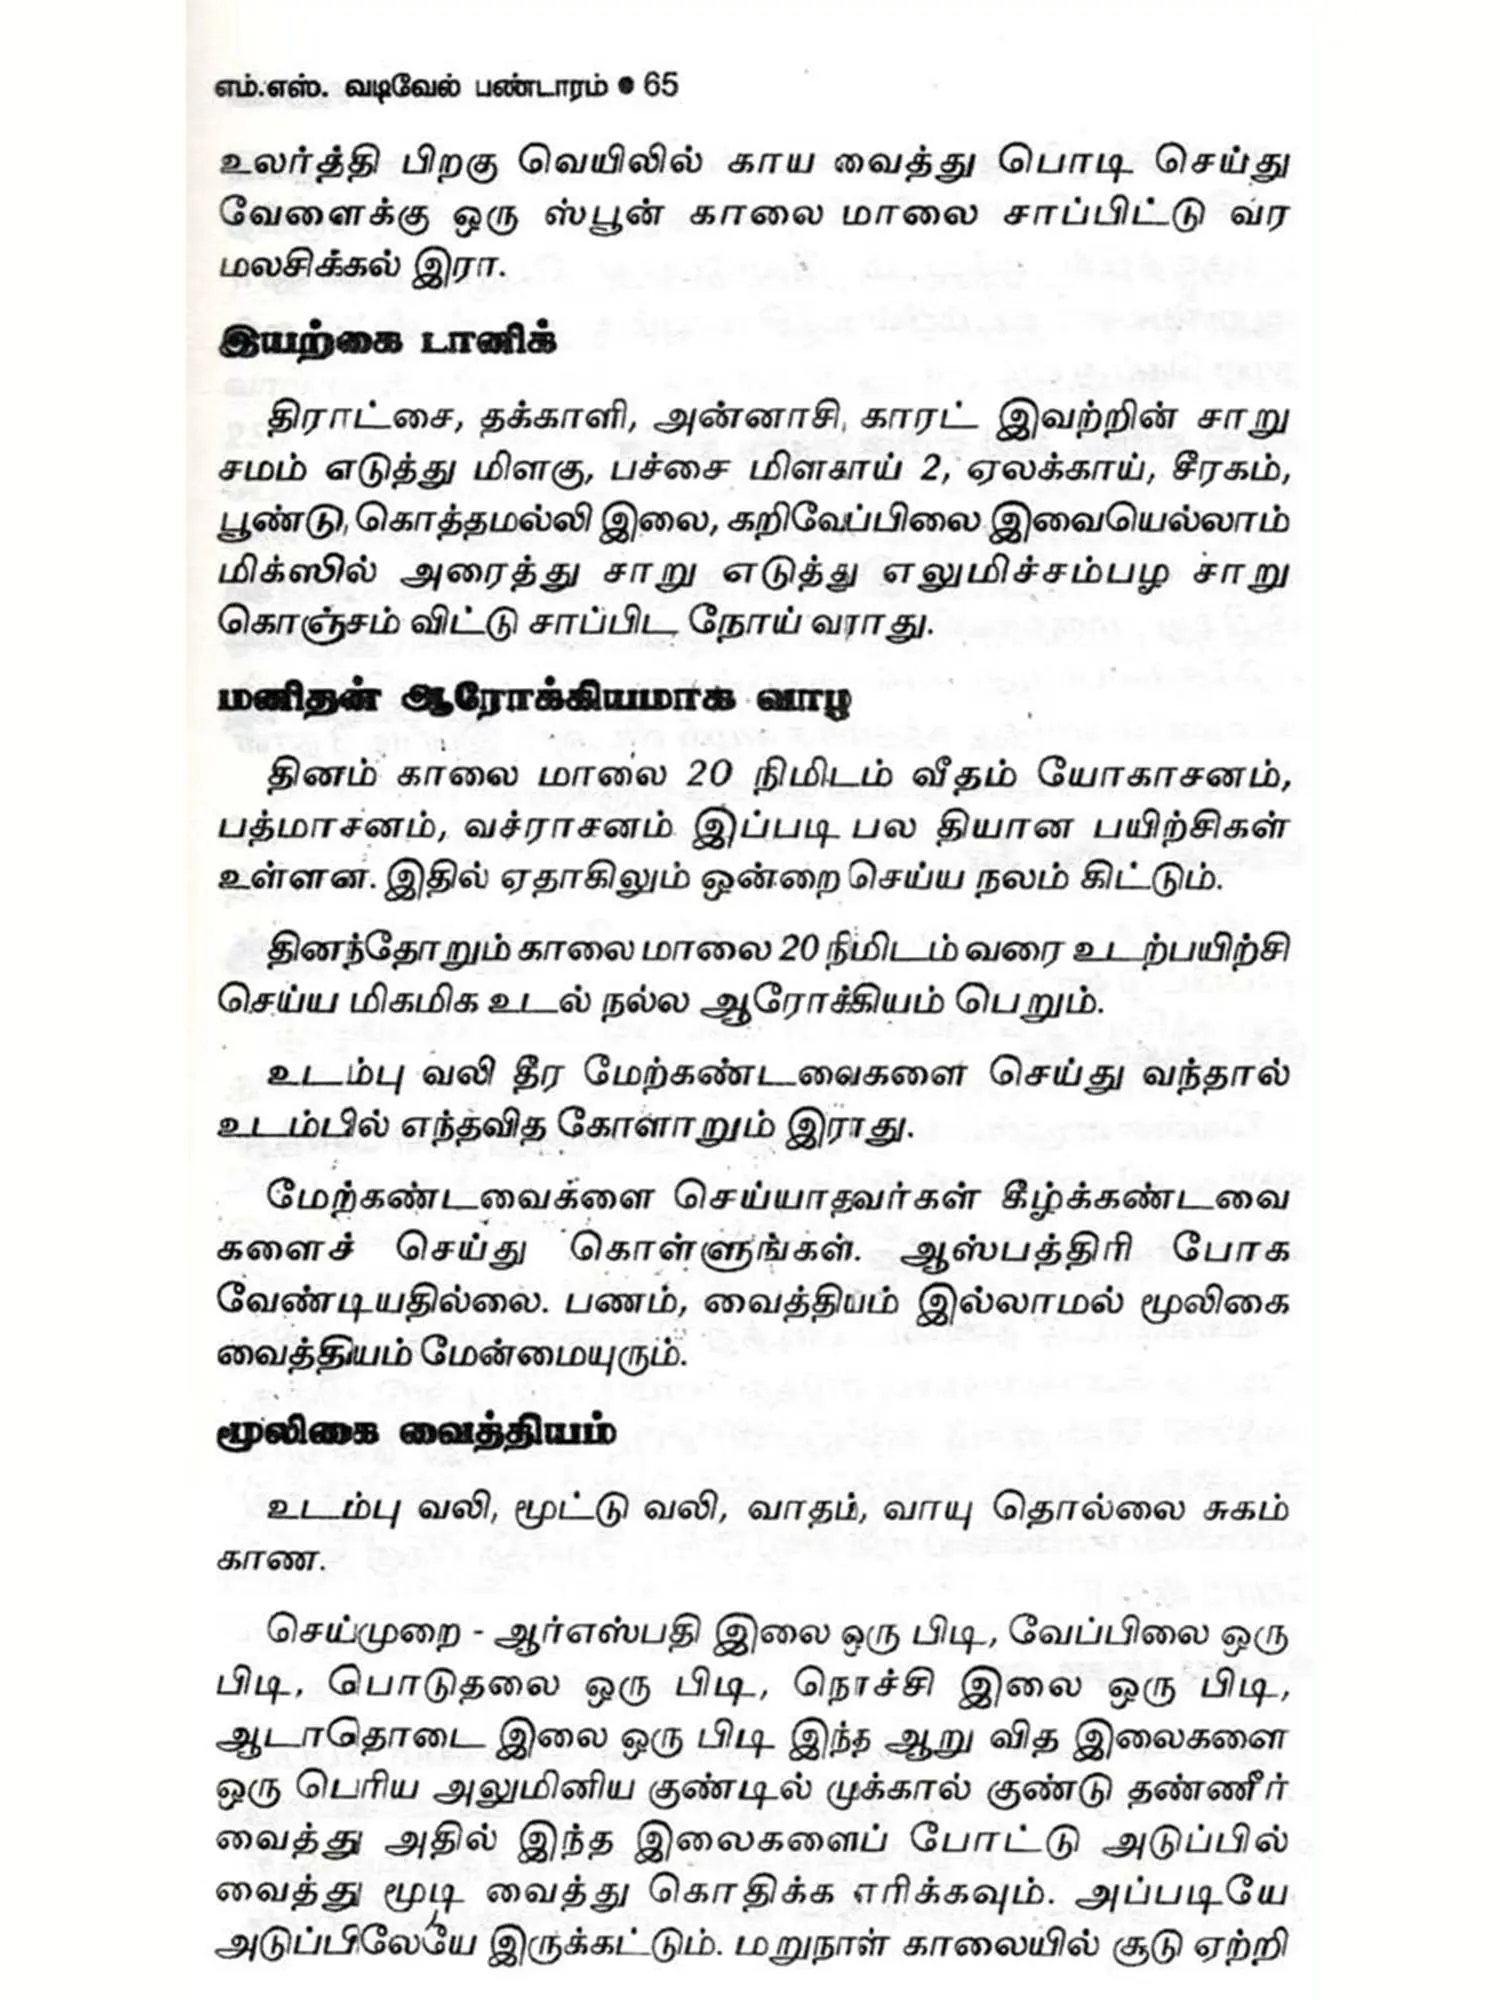 எம்.எஸ். வடிவேல் பண்டாரம் ● 65
உலர்த்தி பிறகு வெயிலில் காய வைத்து பொடி செய்து
வேளைக்கு ஒரு ஸ்பூன் காலை மாலை சாப்பிட்டு வர
மலசிக்கல் இரா.
இயற்கை டானிக்
திராட்சை, தக்காளி, அன்னாசி, காரட் இவற்றின் சாறு
சமம் எடுத்து மிளகு, பச்சை மிளகாய் 2, ஏலக்காய், சீரகம்,
பூண்டு, கொத்தமல்லி இலை, கறிவேப்பிலை இவையெல்லாம்
மிக்ஸில் அரைத்து சாறு எடுத்து எலுமிச்சம்பழ சாறு
கொஞ்சம் விட்டு சாப்பிட நோய் வராது.
மனிதன் ஆரோக்கியமாக வாழ
தினம் காலை மாலை 20 நிமிடம் வீதம் யோகாசனம்,
பத்மாசனம், வச்ராசனம் இப்படி பல தியான பயிற்சிகள்
உள்ளன. இதில் ஏதாகிலும் ஒன்றை செய்ய நலம் கிட்டும்.
தினந்தோறும் காலை மாலை 20 நிமிடம் வரை உடற்பயிற்சி
செய்ய மிகமிக உடல் நல்ல ஆரோக்கியம் பெறும்.
உடம்பு வலி தீர மேற்கண்டவைகளை செய்து வந்தால்
உடம்பில் எந்தவித கோளாறும் இராது.
மேற்கண்டவைகளை செய்யாதவர்கள் கீழ்க்கண்டவை
களைச் செய்து கொள்ளுங்கள். ஆஸ்பத்திரி போக
வேண்டியதில்லை. பணம், வைத்தியம் இல்லாமல் மூலிகை
வைத்தியம் மேன்மையுரும்.
மூலிகை வைத்தியம்
உடம்பு வலி, மூட்டு வலி, வாதம், வாயு தொல்லை சுகம்
காண.
செய்முறை - ஆர்எஸ்பதி இலை ஒரு பிடி, வேப்பிலை ஒரு
பிடி, பொடுதலை ஒரு பிடி, நொச்சி இலை ஒரு பிடி,
ஆடாதொடை இலை ஒரு பிடி இந்த ஆறு வித இலைகளை
ஒரு பெரிய அலுமினிய குண்டில் முக்கால் குண்டு தண்ணீர்
வைத்து அதில் இந்த இலைகளைப் போட்டு அடுப்பில்
வைத்து மூடி வைத்து கொதிக்க எரிக்கவும். அப்படியே
அடுப்பிலேயே இருக்கட்டும். மறுநாள் காலையில் சூடு ஏற்றி